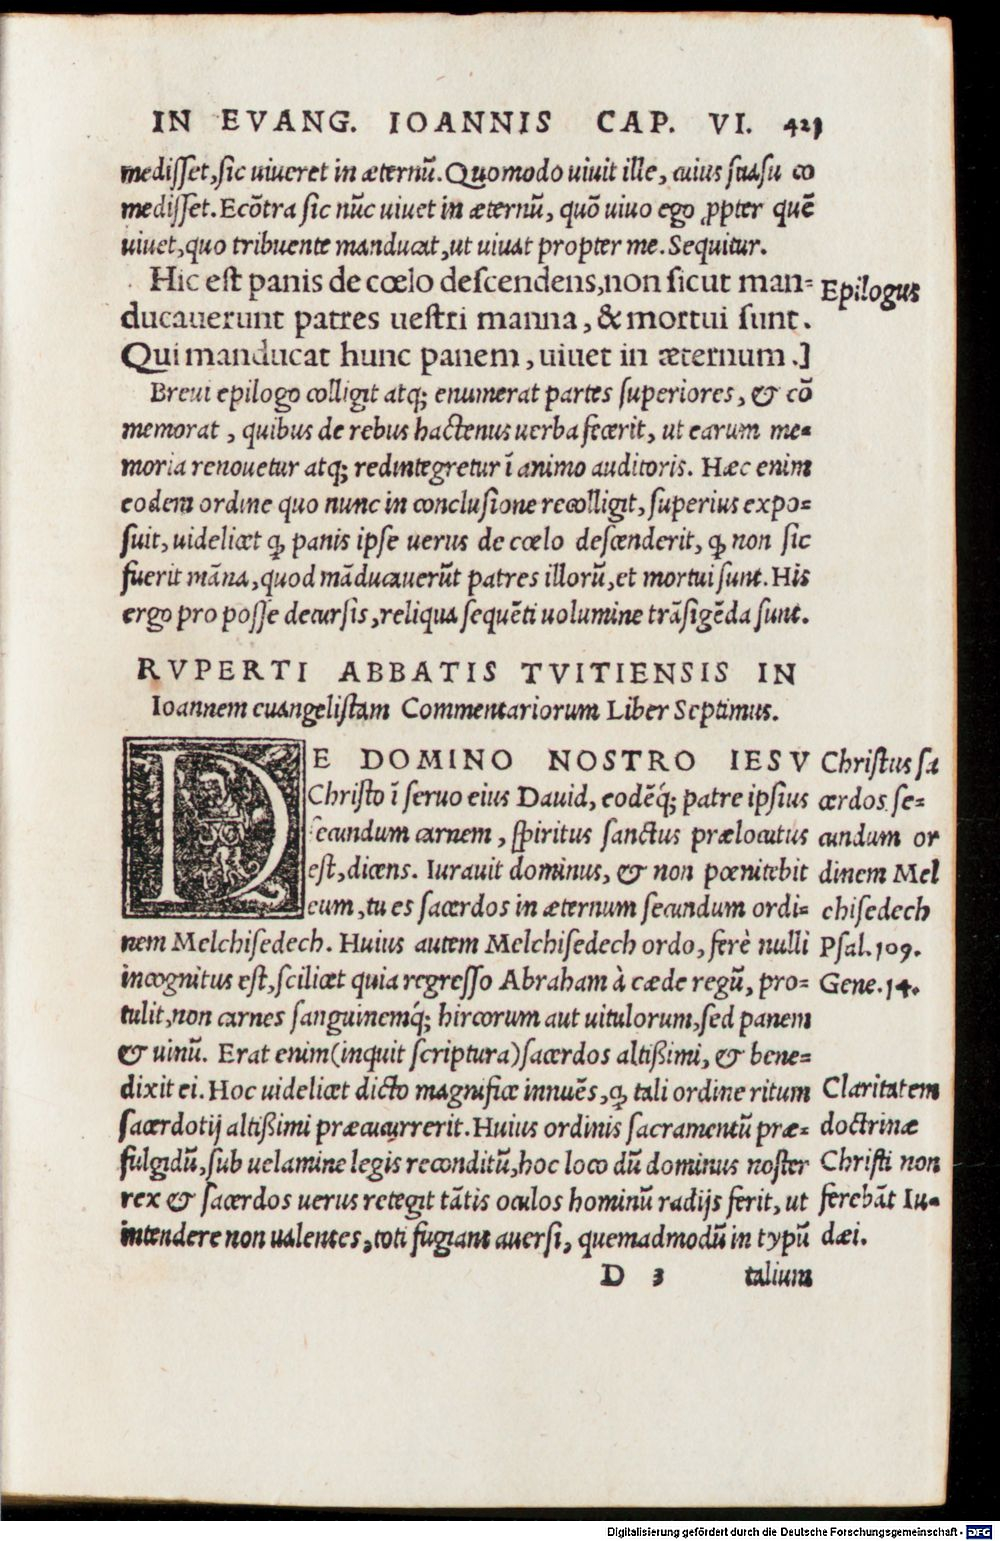 IN EVANG. IOANNIS CAP. VI. 421
medisset, sic uiueret in æternũ. Quomodo uiuit ille, cuius suasu co
medisset. Ecõtra sic nũc uiuet in æternũ, quõ uiuo ego ꝓpter quẽ
uiuet, quo tribuente manducat, ut uiuat propter me. Sequitur.
Hic est panis de cœlo descendens, non sicut man=
ducauerunt patres uestri manna, & mortui sunt.
Qui manducat hunc panem, uiuet in æternum.]
Epilogus
Breui epilogo colligit atq; enumerat partes superiores, & cõ
memorat, quibus de rebus hactenus uerba fecerit, ut earum me=
moria renouetur atq; redintegretur ĩ animo auditoris. Hæc enim
eodem ordine quo nunc in conclusione recolligit, superius expo=
suit, uidelicet ꝙ panis ipse uerus de cœlo descenderit, ꝙ non sic
fuerit mãna, quod mãducauerũt patres illorũ, et mortui sunt. His
ergo pro posse decursis, reliqua sequẽti uolumine trãsigẽda sunt.
RVPERTI ABBATIS TVITIENSIS IN
Ioannem euangelistam Commentariorum Liber Septimus.
DE DOMINO NOSTRO IESV
Christo ĩ seruo eius Dauid, eodẽq́; patre ipsius
secundum carnem, spiritus sanctus prælocutus
est, dicens. Iurauit dominus, & non pœnitebit
eum, tu es sacerdos in æternum secundum ordi=
nem Melchisedech. Huius autem Melchisedech ordo, ferè nulli
incognitus est, scilicet quia regresso Abraham à cæde regũ, pro=
tulit, non carnes sanguinemq́; hircorum aut uitulorum, sed panem
& uinũ. Erat enim (inquit scriptura) sacerdos altißimi, & bene=
dixit ei. Hoc uidelicet dicto magnifice innuẽs, ꝙ tali ordine ritum
sacerdotij altißimi præcucurrerit. Huius ordinis sacramentũ præ=
fulgidũ, sub uelamine legis reconditũ, hoc loco dũ dominus noster
rex & sacerdos uerus retegit tãtis oculos hominũ radijs ferit, ut
intendere non ualentes, toti fugiant auersi, quemadmodũ in typũ
Christus sa
cerdos se=
cundum or
dinem Mel
chisedech
Psal. 109.
Gene. 14.
Claritatem
doctrinæ
Christi non
ferebãt Iu=
dæi.
D 3 talium
Digitalisierung gefördert durch die Deutsche Forschungsgemeinschaft - DFG